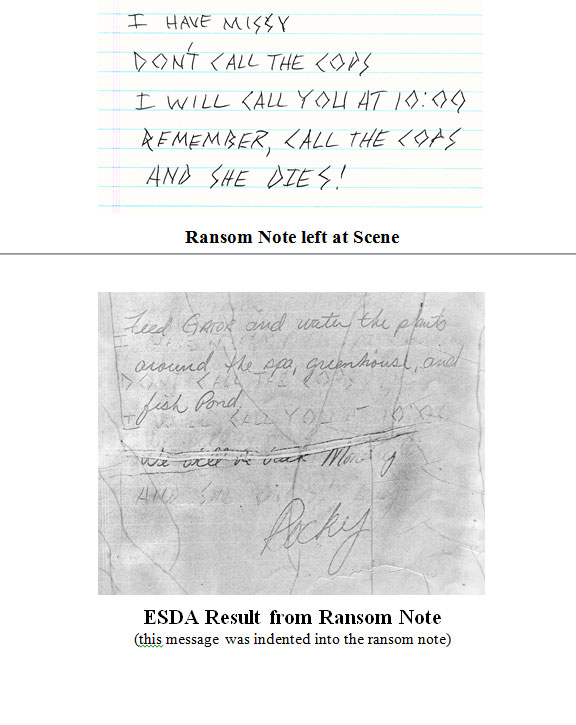 I HAVE MISSY
DON'T CALL THE COPS
I WILL CALL YOU AT 10:00
REMEMBER, CALL THE COPS
AND SHE DIES!
Ransom Note left at Scene
Feed GATOR and water the plants
around the spa, greenhouse, and
fish Pond.
We will be back Monday
Rocky
ESDA Result from Ransom Note
(this message was indented into the ransom note)